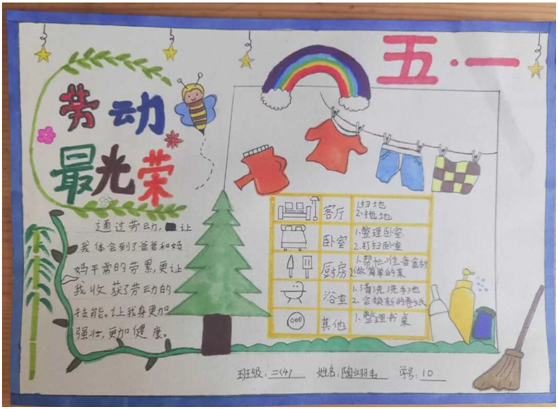 五·一
劳动
最光荣
通过劳动,让
我体会到了爸爸和妈
妈平常的劳累,更让
我收获了劳动的
技能,让我身更加
强壮,更加健康。
客厅
1.扫地
2.拖地
卧室
1.整理卧室
2.打扫卧室
厨房
浴室
其他
1.整理书桌
班级:二(4)
姓名:
学号:10